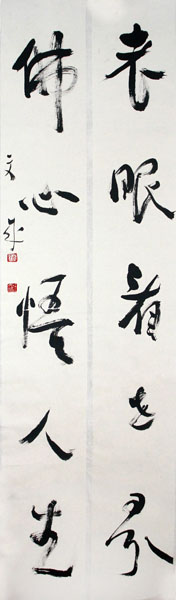 老眼看世界
佛心悟人生